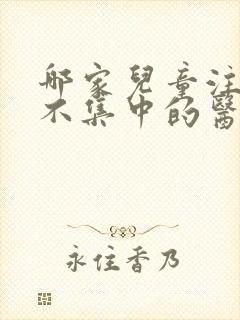 哪家兒童注
不集中的醫
永住香乃